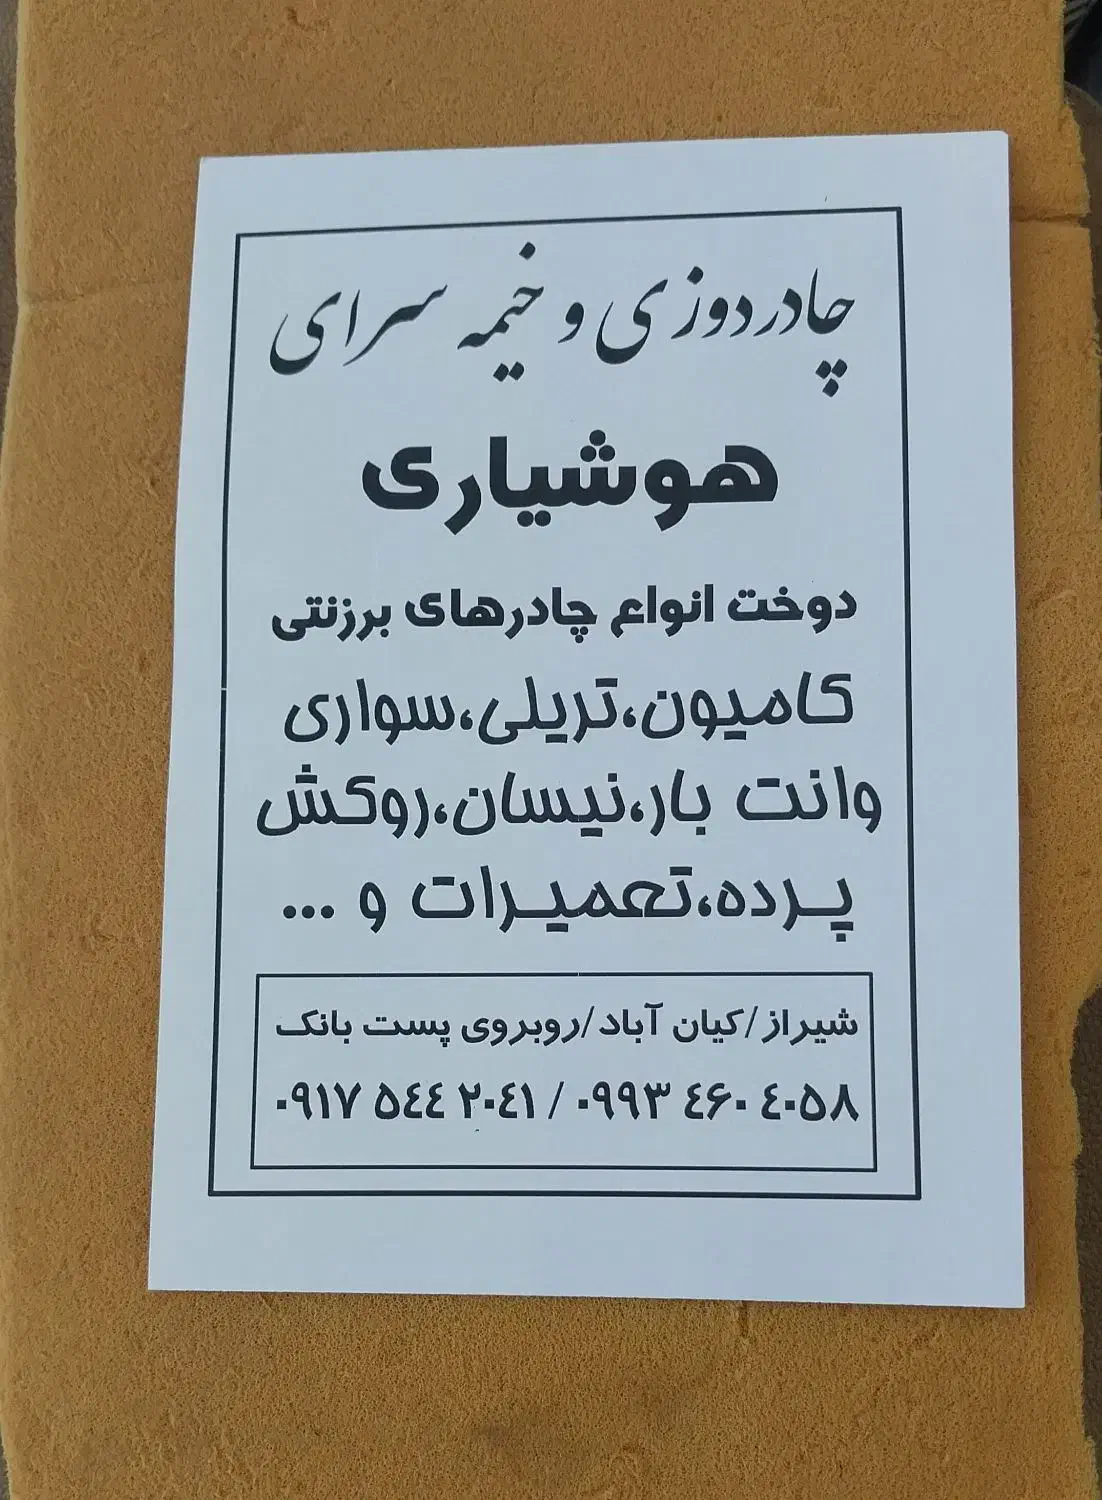 چادردوزی و خیمه سرای
هوشیاری
دوخت انواع چادرهای برزنتی
کامیون،تریلی،سواری
وانت بار،نیسان،روکش
پرده،تعمیرات و ...
شیراز/کیان آباد/روبروی پست بانک
۰۹۱۷ ۵۴۴ ۲۰۴۱ / ۰۹۹۳ ۴۶۰ ۴۰۵۸